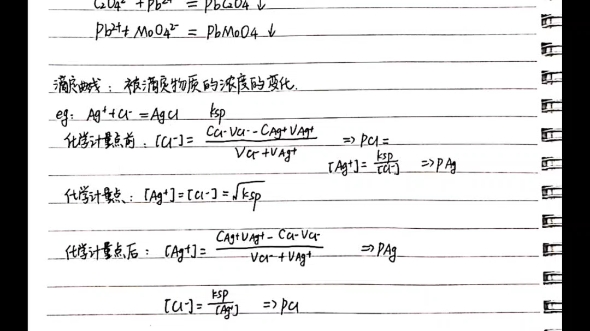 C2O4²⁻ + Pb²⁺ = PbC2O4↓
Pb²⁺ + MoO4²⁻ = PbMoO4↓
滴定曲线：被滴定物质的浓度的变化.
eg: Ag⁺ + Cl⁻ = AgCl ksp
化学计量点前：[Cl⁻] = (CCl⁻VCl⁻ - CAg⁺VAg⁺) / (VCl⁻ + VAg⁺) ⇒ PCl =
[Ag⁺] = ksp/[Cl⁻] ⇒ PAg
化学计量点：[Ag⁺] = [Cl⁻] = √ksp
化学计量点后：[Ag⁺] = (CAg⁺VAg⁺ - CCl⁻VCl⁻) / (VCl⁻ + VAg⁺) ⇒ PAg
[Cl⁻] = ksp/[Ag⁺] ⇒ PCl